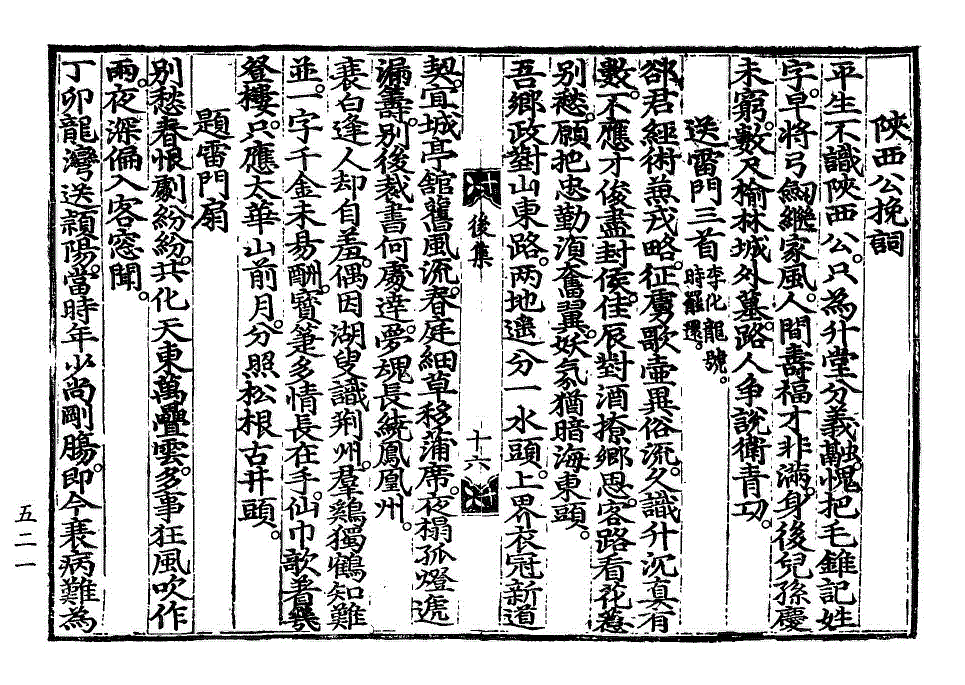 陝西公挽詞
平生不識陝西公。只爲升堂分義融。愧把毛錐記姓
字。早將弓韣繼家風。人間壽福才非滿。身後兒孫慶
未窮。數尺楡林城外墓。路人爭說衛靑功。
送雷門三首 李化龍號。時罷還。
郤君經術兼戎略。征虜歌壺異俗流。久識升沉眞有
數。不應才俊盡封侯。佳辰對酒撩鄕思。客路看花惹
別愁。願把忠勤湏奮翼。妖氛猶暗海東頭。
吾鄕政對山東路。兩地遙分一水頭。上界衣冠新道
契。宜城亭舘舊風流。春庭細草移蒲席。夜榻孤燈遞
漏籌。別後裁書何處達。夢魂長繞鳳凰州。
後集
十六
衰白逢人却自羞。偶因湖叟識荊州。羣鷄獨鶴知難
並。一字千金未易酬。寶箑多情長在手。仙巾歌著幾
登樓。只應太華山前月。分照松根古井頭。
題雷門扇
別愁春恨劇紛紛。共化天東萬疊雲。多事狂風吹作
雨。夜深偏入客窓聞。
丁卯龍灣送潁陽。當時年少尙剛膓。卽今衰病難爲
五二一